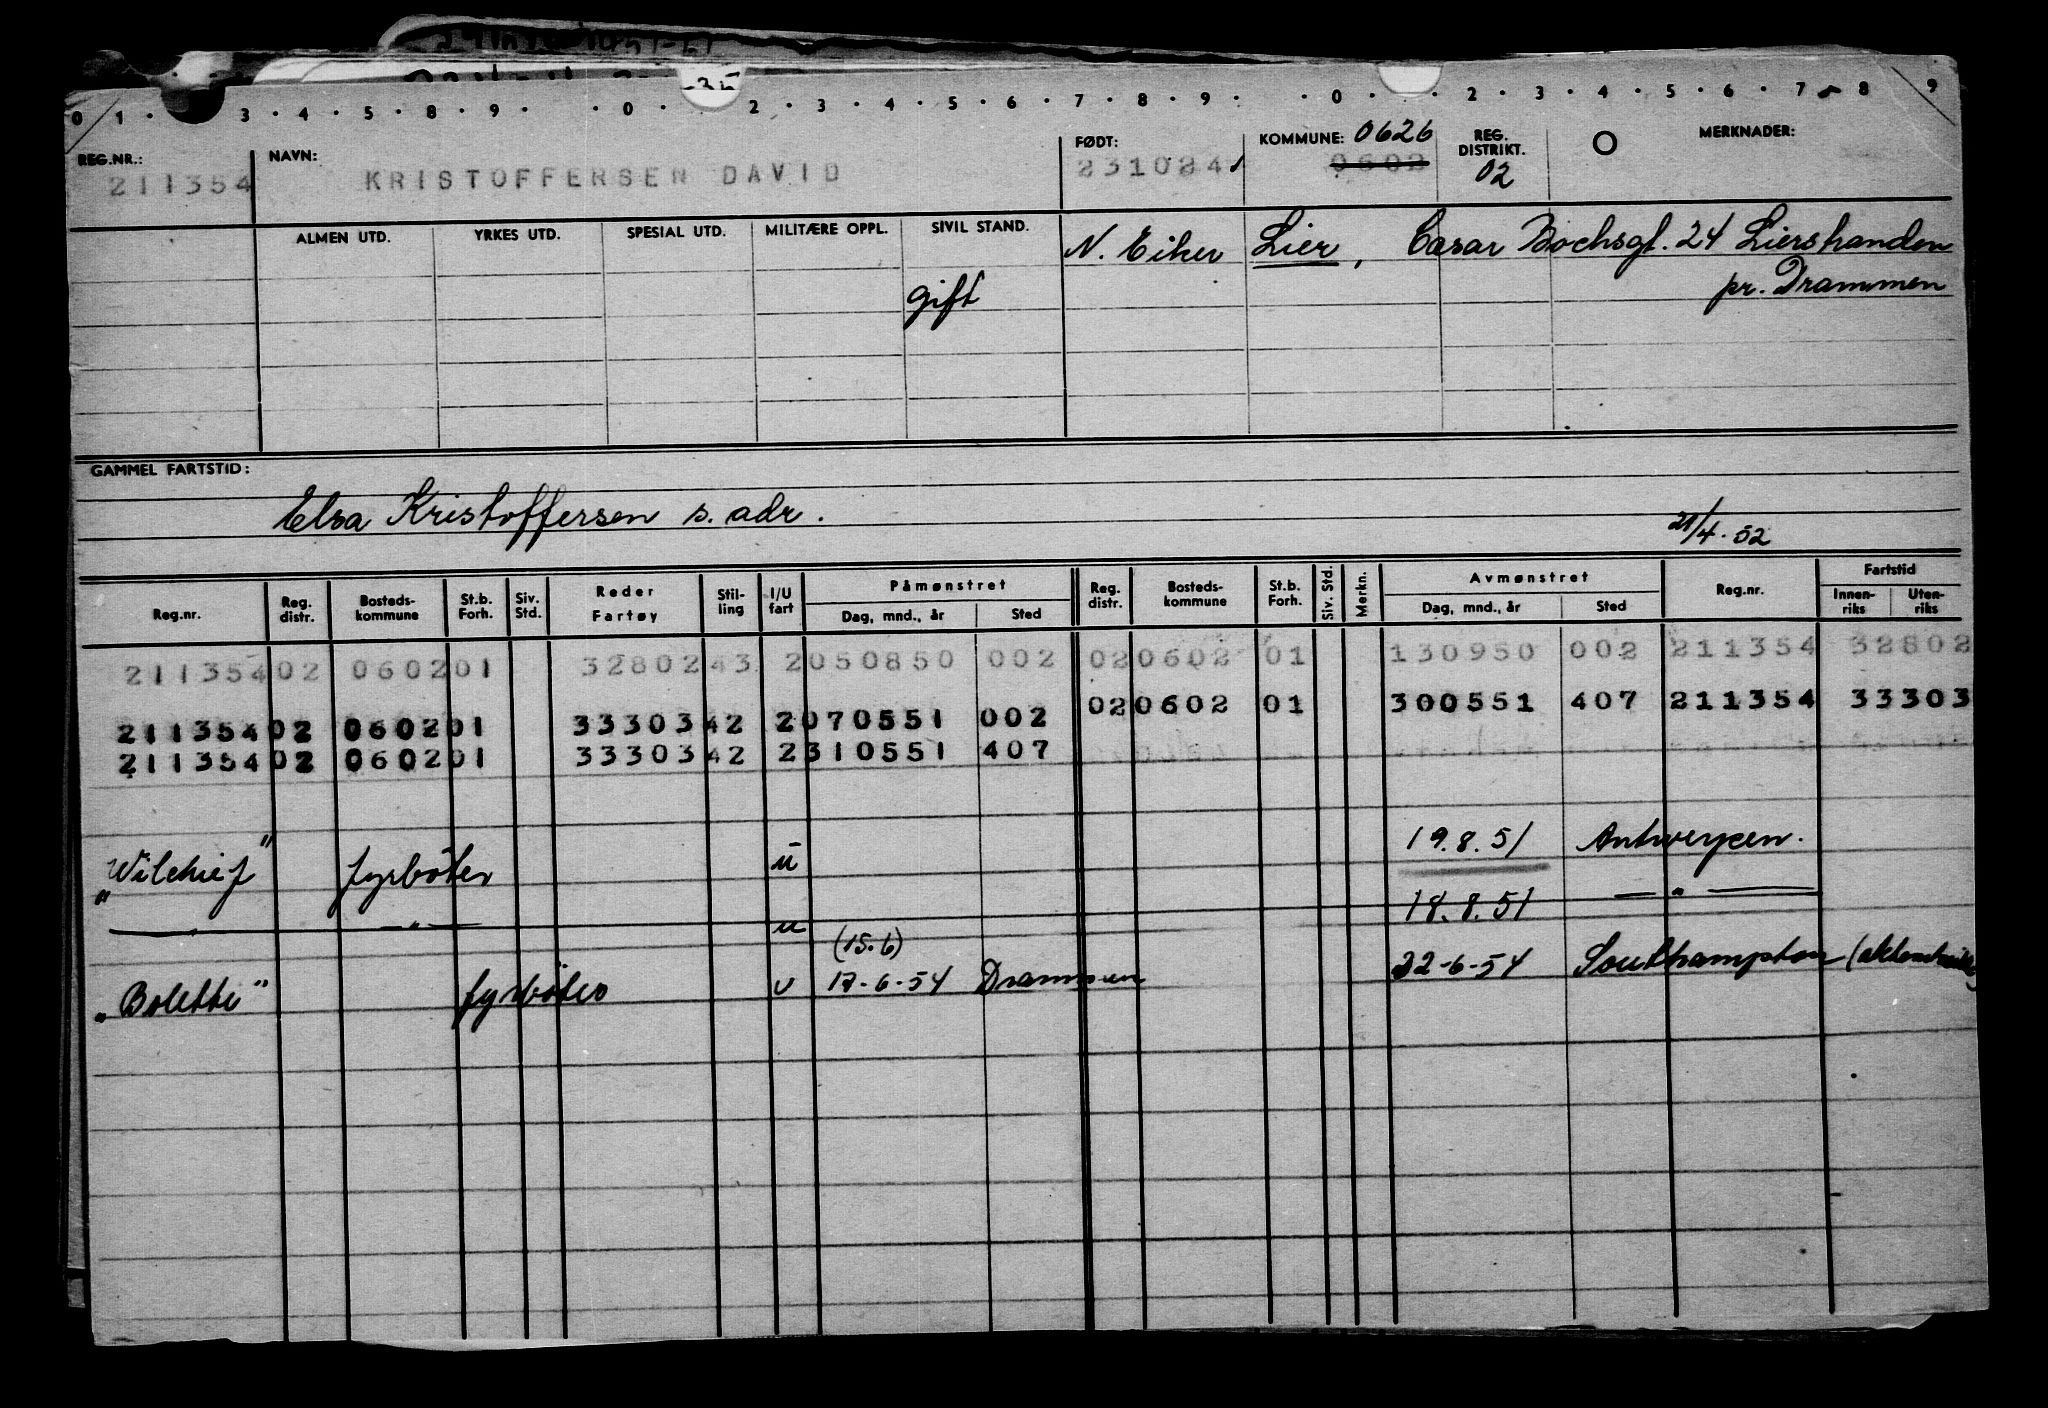 0 1 · 3 · 4 · 5 · 8 · 9 · · 0 · 2 · 3 · 4 · 5 · 6 · 7 · 8 · 9 · · 0 · · 2 · 3 · 4 · 5 · 6 · 7 · 8 9
REG.NR.: NAVN: FØDT: KOMMUNE: 0626 REG. DISTRIKT. O MERKNADER:
211354 KRISTOFFERSEN DAVID 2310241 0602 02
ALMEN UTD. YRKES UTD. SPESIAL UTD. MILITÆRE OPPL. SIVIL STAND. N. Eiker Lier, Cæsar Bochsgt. 24 Lierstranden
gift pr. Drammen
GAMMEL FARTSTID:
Elsa Kristoffersen s. adr.
21/4. 52
Reg.nr. Reg. distr. Bosteds- kommune St.b. Forh. Siv. Std. Reder Fartøy Stil- ling I/U fart Påmønstret Dag, mnd., år Sted Reg. distr. Bosteds- kommune St.b. Forh. Siv. Std. Merkn. Avmønstret Dag, mnd., år Sted Reg.nr. Fartstid Innen- riks Uten- riks
211354 02 0602 01 32802 43 2 050850 002 02 0602 01 130950 002 211354 32802
211354 02 0602 01 33303 42 2 070551 002 02 0602 01 300551 407 211354 33303
211354 02 0602 01 33303 42 2 310551 407
"Wilchief" fyrbøter u 19.8.51 Antwerpen.
— " — — " — u 18.8.51 — " —
"Bolette" fyrbøter u (15.6) 17-6-54 Drammen 22-6-54 Southampton